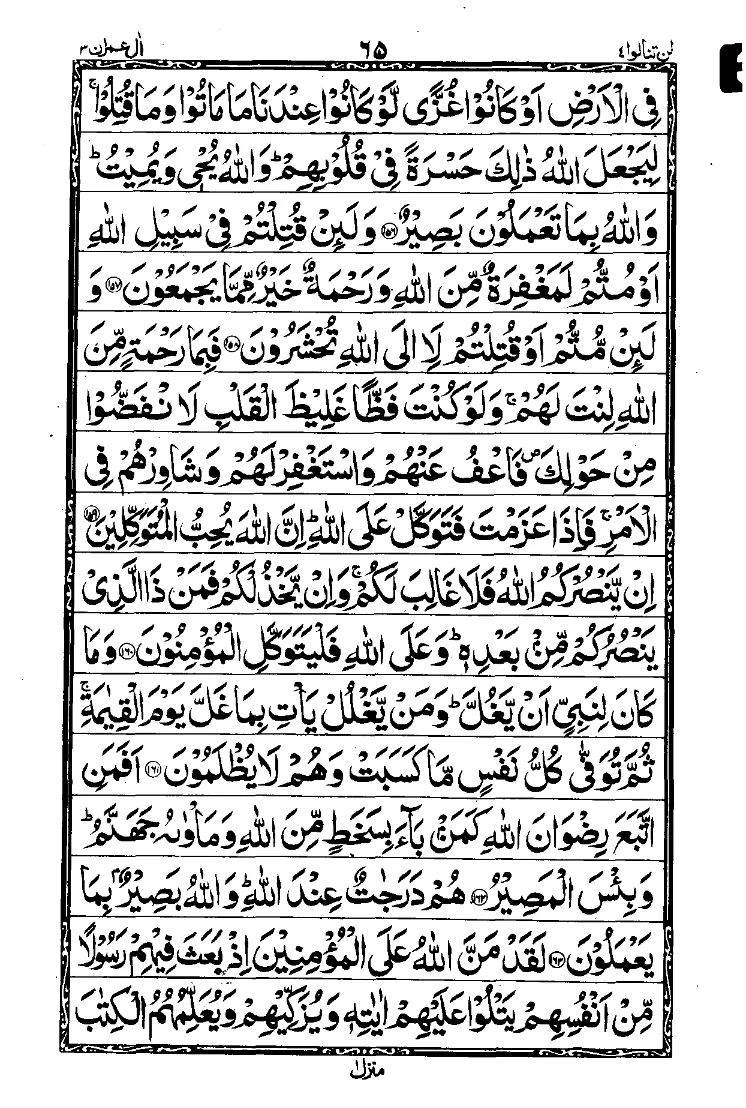 لن تنالوا ٤ ٦٥ اٰل عمرٰن ٣
فِى الۡاَرۡضِ اَوۡ كَانُوۡا غُزًّى لَّوۡ كَانُوۡا عِنۡدَنَا مَا مَاتُوۡا وَمَا قُتِلُوۡا ۚ
لِيَجۡعَلَ اللّٰهُ ذٰلِكَ حَسۡرَةً فِىۡ قُلُوۡبِهِمۡ ؕ وَاللّٰهُ يُحۡىٖ وَيُمِيۡتُ ؕ
وَاللّٰهُ بِمَا تَعۡمَلُوۡنَ بَصِيۡرٌ ﴿۱۵۶﴾ وَلَئِنۡ قُتِلۡتُمۡ فِىۡ سَبِيۡلِ اللّٰهِ
اَوۡ مُتُّمۡ لَمَغۡفِرَةٌ مِّنَ اللّٰهِ وَرَحۡمَةٌ خَيۡرٌ مِّمَّا يَجۡمَعُوۡنَ ﴿۱۵۷﴾ وَ
لَئِنۡ مُّتُّمۡ اَوۡ قُتِلۡتُمۡ لَا۟اِلَى اللّٰهِ تُحۡشَرُوۡنَ ﴿۱۵۸﴾ فَبِمَا رَحۡمَةٍ مِّنَ
اللّٰهِ لِنۡتَ لَهُمۡ ۚ وَلَوۡ كُنۡتَ فَظًّا غَلِيۡظَ الۡقَلۡبِ لَانْفَضُّوۡا
مِنۡ حَوۡلِكَ ۖ فَاعۡفُ عَنۡهُمۡ وَاسۡتَغۡفِرۡ لَهُمۡ وَشَاوِرۡهُمۡ فِى
الۡاَمۡرِ ۚ فَاِذَا عَزَمۡتَ فَتَوَكَّلۡ عَلَى اللّٰهِ ؕ اِنَّ اللّٰهَ يُحِبُّ الۡمُتَوَكِّلِيۡنَ ﴿۱۵۹﴾
اِنۡ يَّنۡصُرۡكُمُ اللّٰهُ فَلَا غَالِبَ لَكُمۡ ۚ وَاِنۡ يَّخۡذُلۡكُمۡ فَمَنۡ ذَا الَّذِىۡ
يَنۡصُرُكُمۡ مِّنۡۢ بَعۡدِهٖ ؕ وَعَلَى اللّٰهِ فَلۡيَتَوَكَّلِ الۡمُؤۡمِنُوۡنَ ﴿۱۶۰﴾ وَمَا
كَانَ لِنَبِىٍّ اَنۡ يَّغُلَّ ؕ وَمَنۡ يَّغۡلُلۡ يَاۡتِ بِمَا غَلَّ يَوۡمَ الۡقِيٰمَةِ ۚ
ثُمَّ تُوَفّٰى كُلُّ نَفۡسٍ مَّا كَسَبَتۡ وَهُمۡ لَا يُظۡلَمُوۡنَ ﴿۱۶۱﴾ اَفَمَنِ
اتَّبَعَ رِضۡوَانَ اللّٰهِ كَمَنۡۢ بَآءَ بِسَخَطٍ مِّنَ اللّٰهِ وَمَاۡوٰٮهُ جَهَنَّمُ ؕ
وَبِئۡسَ الۡمَصِيۡرُ ﴿۱۶۲﴾ هُمۡ دَرَجٰتٌ عِنۡدَ اللّٰهِ ؕ وَاللّٰهُ بَصِيۡرٌۢ بِمَا
يَعۡمَلُوۡنَ ﴿۱۶۳﴾ لَقَدۡ مَنَّ اللّٰهُ عَلَى الۡمُؤۡمِنِيۡنَ اِذۡ بَعَثَ فِيۡهِمۡ رَسُوۡلًا
مِّنۡ اَنۡفُسِهِمۡ يَتۡلُوۡا عَلَيۡهِمۡ اٰيٰتِهٖ وَيُزَكِّيۡهِمۡ وَيُعَلِّمُهُمُ الۡكِتٰبَ
منزل ۱